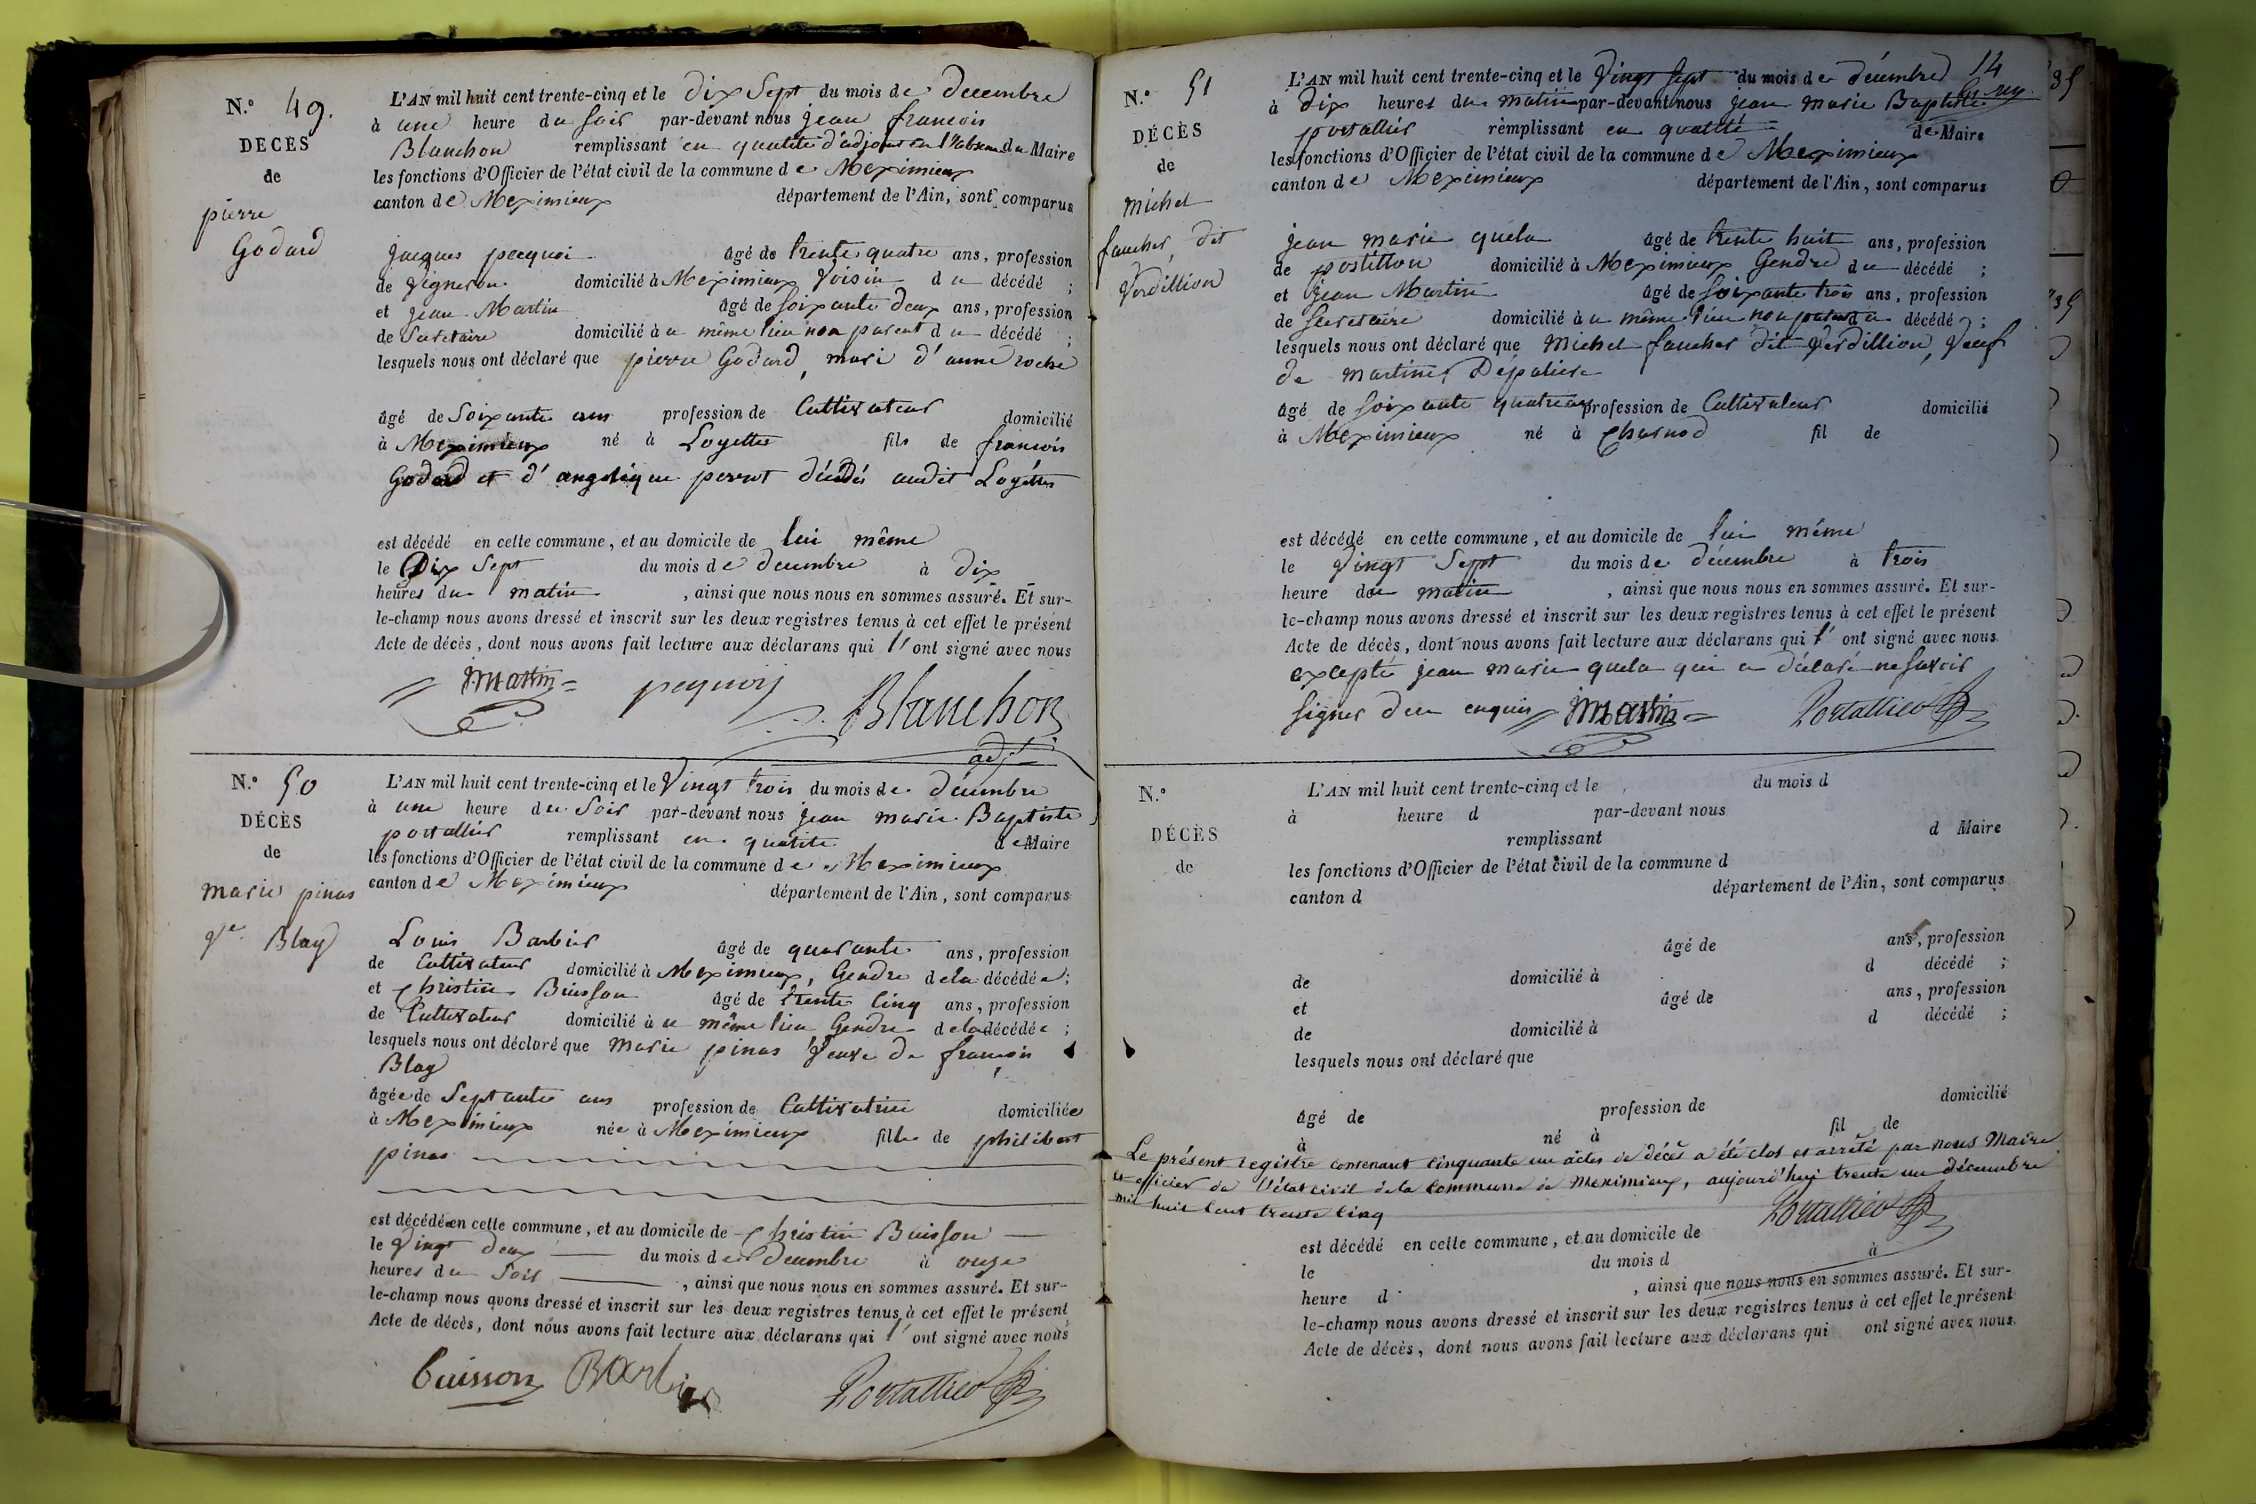 N.° 49.
DÉCÈS
de
pierre
Godard
L'AN mil huit cent trente-cinq et le dix Sept du mois de decembre
à une heure du soir par-devant nous jean francois
Blanchon remplissant en qualité d'adjoint en l'absence du Maire
les fonctions d'Officier de l'état civil de la commune de Meximieux
canton de Meximieux département de l'Ain, sont comparus
jacques âgé de trente quatre ans, profession
de Vigneron domicilié à Meximieux Voisin du décédé ;
et jean Martin âgé de soixante deux ans, profession
de Secretaire domicilié à u même lieu non parent du décédé ;
lesquels nous ont déclaré que pierre Godard, mari d'anne roche
âgé de Soixante ans profession de Cultivateur domicilié
à Meximieux né à Loyettes fils de francois
Godard et d'angelique perrot décédés audit Loyettes
est décédé en cette commune, et au domicile de lui même
le Dix Sept du mois de decembre à dix
heures du matin, ainsi que nous nous en sommes assuré. Et sur-
le-champ nous avons dressé et inscrit sur les deux registres tenus à cet effet le présent
Acte de décès, dont nous avons fait lecture aux déclarans qui l'ont signé avec nous
Martin Blanchon
adj
N.° 50
DÉCÈS
de
Marie pinas
Ve Blay
L'AN mil huit cent trente-cinq et le Vingt trois du mois de décembre
à une heure du Soir par-devant nous jean marie Baptiste
portallier remplissant en qualité de Maire
les fonctions d'Officier de l'état civil de la commune de Meximieux
canton de Meximieux département de l'Ain, sont comparus
Louis Barbier âgé de quarante ans, profession
de Cultivateur domicilié à Meximieux, Gendre de la décédée ;
et Christin Buisson âgé de trente cinq ans, profession
de Cultivateur domicilié à u même lieu Gendre de la décédée ;
lesquels nous ont déclaré que Marie pinas Veuve de francois
Blay
âgée de Septante ans profession de Cultivatrice domiciliée
à Meximieux née à Meximieux fille de philibert
pinas
est décédée en cette commune, et au domicile de Christin Buisson
le Vingt deux du mois de decembre à onze
heures du Soir, ainsi que nous nous en sommes assuré. Et sur-
le-champ nous avons dressé et inscrit sur les deux registres tenus à cet effet le présent
Acte de décès, dont nous avons fait lecture aux déclarans qui l'ont signé avec nous
buisson Barbier Portallier
14
N.° 51
DÉCÈS
de
michel
faucher, dit
Verdillion
L'AN mil huit cent trente-cinq et le Vingt sept du mois de décembre
à dix heures du matin par-devant nous jean marie Baptiste
portallier remplissant en qualité de Maire
les fonctions d'Officier de l'état civil de la commune de Meximieux
canton de Meximieux département de l'Ain, sont comparus
jean marie quela âgé de trente huit ans, profession
de postillon domicilié à Meximieux Gendre du décédé ;
et jean Martin âgé de soixante trois ans, profession
de Secretaire domicilié à u même lieu non parent du décédé ;
lesquels nous ont déclaré que Michel faucher dit Verdillion, Veuf
de martine
âgé de soixante quatre ans profession de Cultivateur domicilié
à Meximieux né à Charnod fil de
est décédé en cette commune, et au domicile de lui même
le Vingt Sept du mois de décembre à trois
heure du matin, ainsi que nous nous en sommes assuré. Et sur-
le-champ nous avons dressé et inscrit sur les deux registres tenus à cet effet le présent
Acte de décès, dont nous avons fait lecture aux déclarans qui l'ont signé avec nous
excepté jean marie quela qui a déclaré ne savoir
signer de ce enquis Martin Portallier
N.°
DÉCÈS
de
L'AN mil huit cent trente-cinq et le du mois d
à heure d par-devant nous
remplissant d Maire
les fonctions d'Officier de l'état civil de la commune d
canton d département de l'Ain, sont comparus
âgé de ans, profession
de domicilié à d décédé ;
et âgé de ans, profession
de domicilié à d décédé ;
lesquels nous ont déclaré que
âgé de profession de domicilié
à né à fil de
Le présent registre contenant cinquante un actes de décès a été clos et arrêté par nous Maire
et officier de l'état civil de la commune de Meximieux, aujourd'hui trente un décembre
mil huit cent trente cinq
Portallier
est décédé en cette commune, et au domicile de
le du mois d à
heure d , ainsi que nous nous en sommes assuré. Et sur-
le-champ nous avons dressé et inscrit sur les deux registres tenus à cet effet le présent
Acte de décès, dont nous avons fait lecture aux déclarans qui ont signé avec nous.